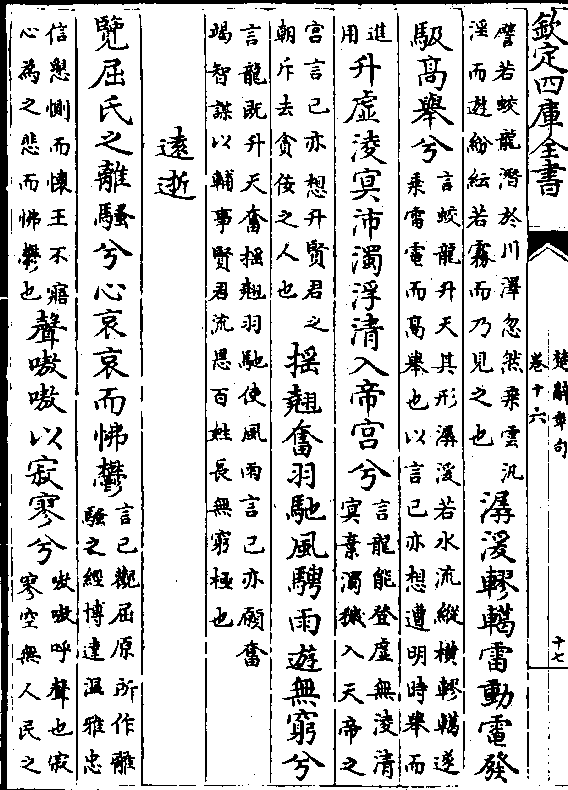 欽定四庫全書
楚辭章句
卷十六
十七
譬若蛟龍潛於川澤忽然乘雲汎
淫而遊紛紜若霧而乃見之也
潺湲轇轕雷動電發
馺髙舉兮
言蛟龍升天其形潺湲若水流縱横轇轕遂
乘雷電而髙舉也以言己亦想遭明時舉而
進
用
升虛淩冥沛濁浮清入帝宫兮
言龍能登虛無淩清
冥棄濁穢入天帝之
宫言己亦想升賢君之
朝斥去貪佞之人也
揺翹奮羽馳風騁雨遊無窮兮
言龍既升天奮揺翹羽馳使風雨言己亦願奮
竭智謀以輔事賢君流恩百姓長無窮極也
遠逝
覽屈氏之離騷兮心哀哀而怫鬱
言己觀屈原所作離
騷之經博達温雅忠
信懇惻而懷王不寤
心為之悲而怫鬱也
聲嗷嗷以寂寥兮
嗷嗷呼聲也寂
寥空無人民之